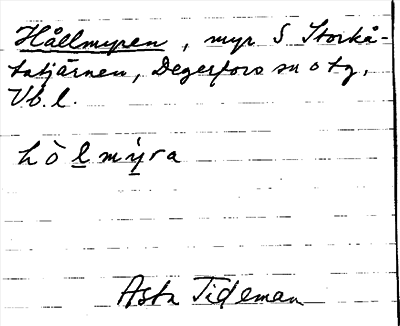 Hållmyren, myr S Storkå-
tatjärnen, Degerfors sn o tg,
Vb. l.
hòlmýra
Asta Tideman